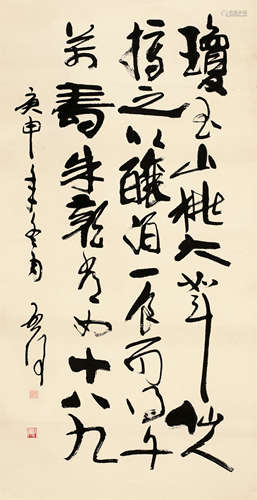 瓊玉山桃大如斗仙人
摘之以釀酒一食可得千
萬壽朱顏常如十八九
庚申年冬月